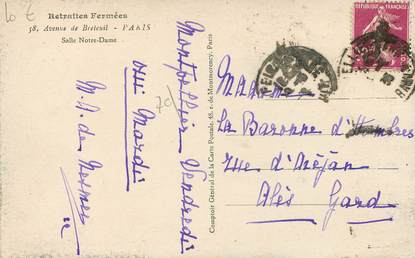 10 €
Retraites Fermées
58, Avenue de Breteuil - PARIS
Salle Notre-Dame
Montpellier Vendredi
ou Mardi
M. A. de
Comptoir Général de la Carte Postale, 65, r. de Montmorency, Paris
REPUBLIQUE FRANÇAISE
Madame
La Baronne d'Hombres
rue d'Aréjan
Alès Gard